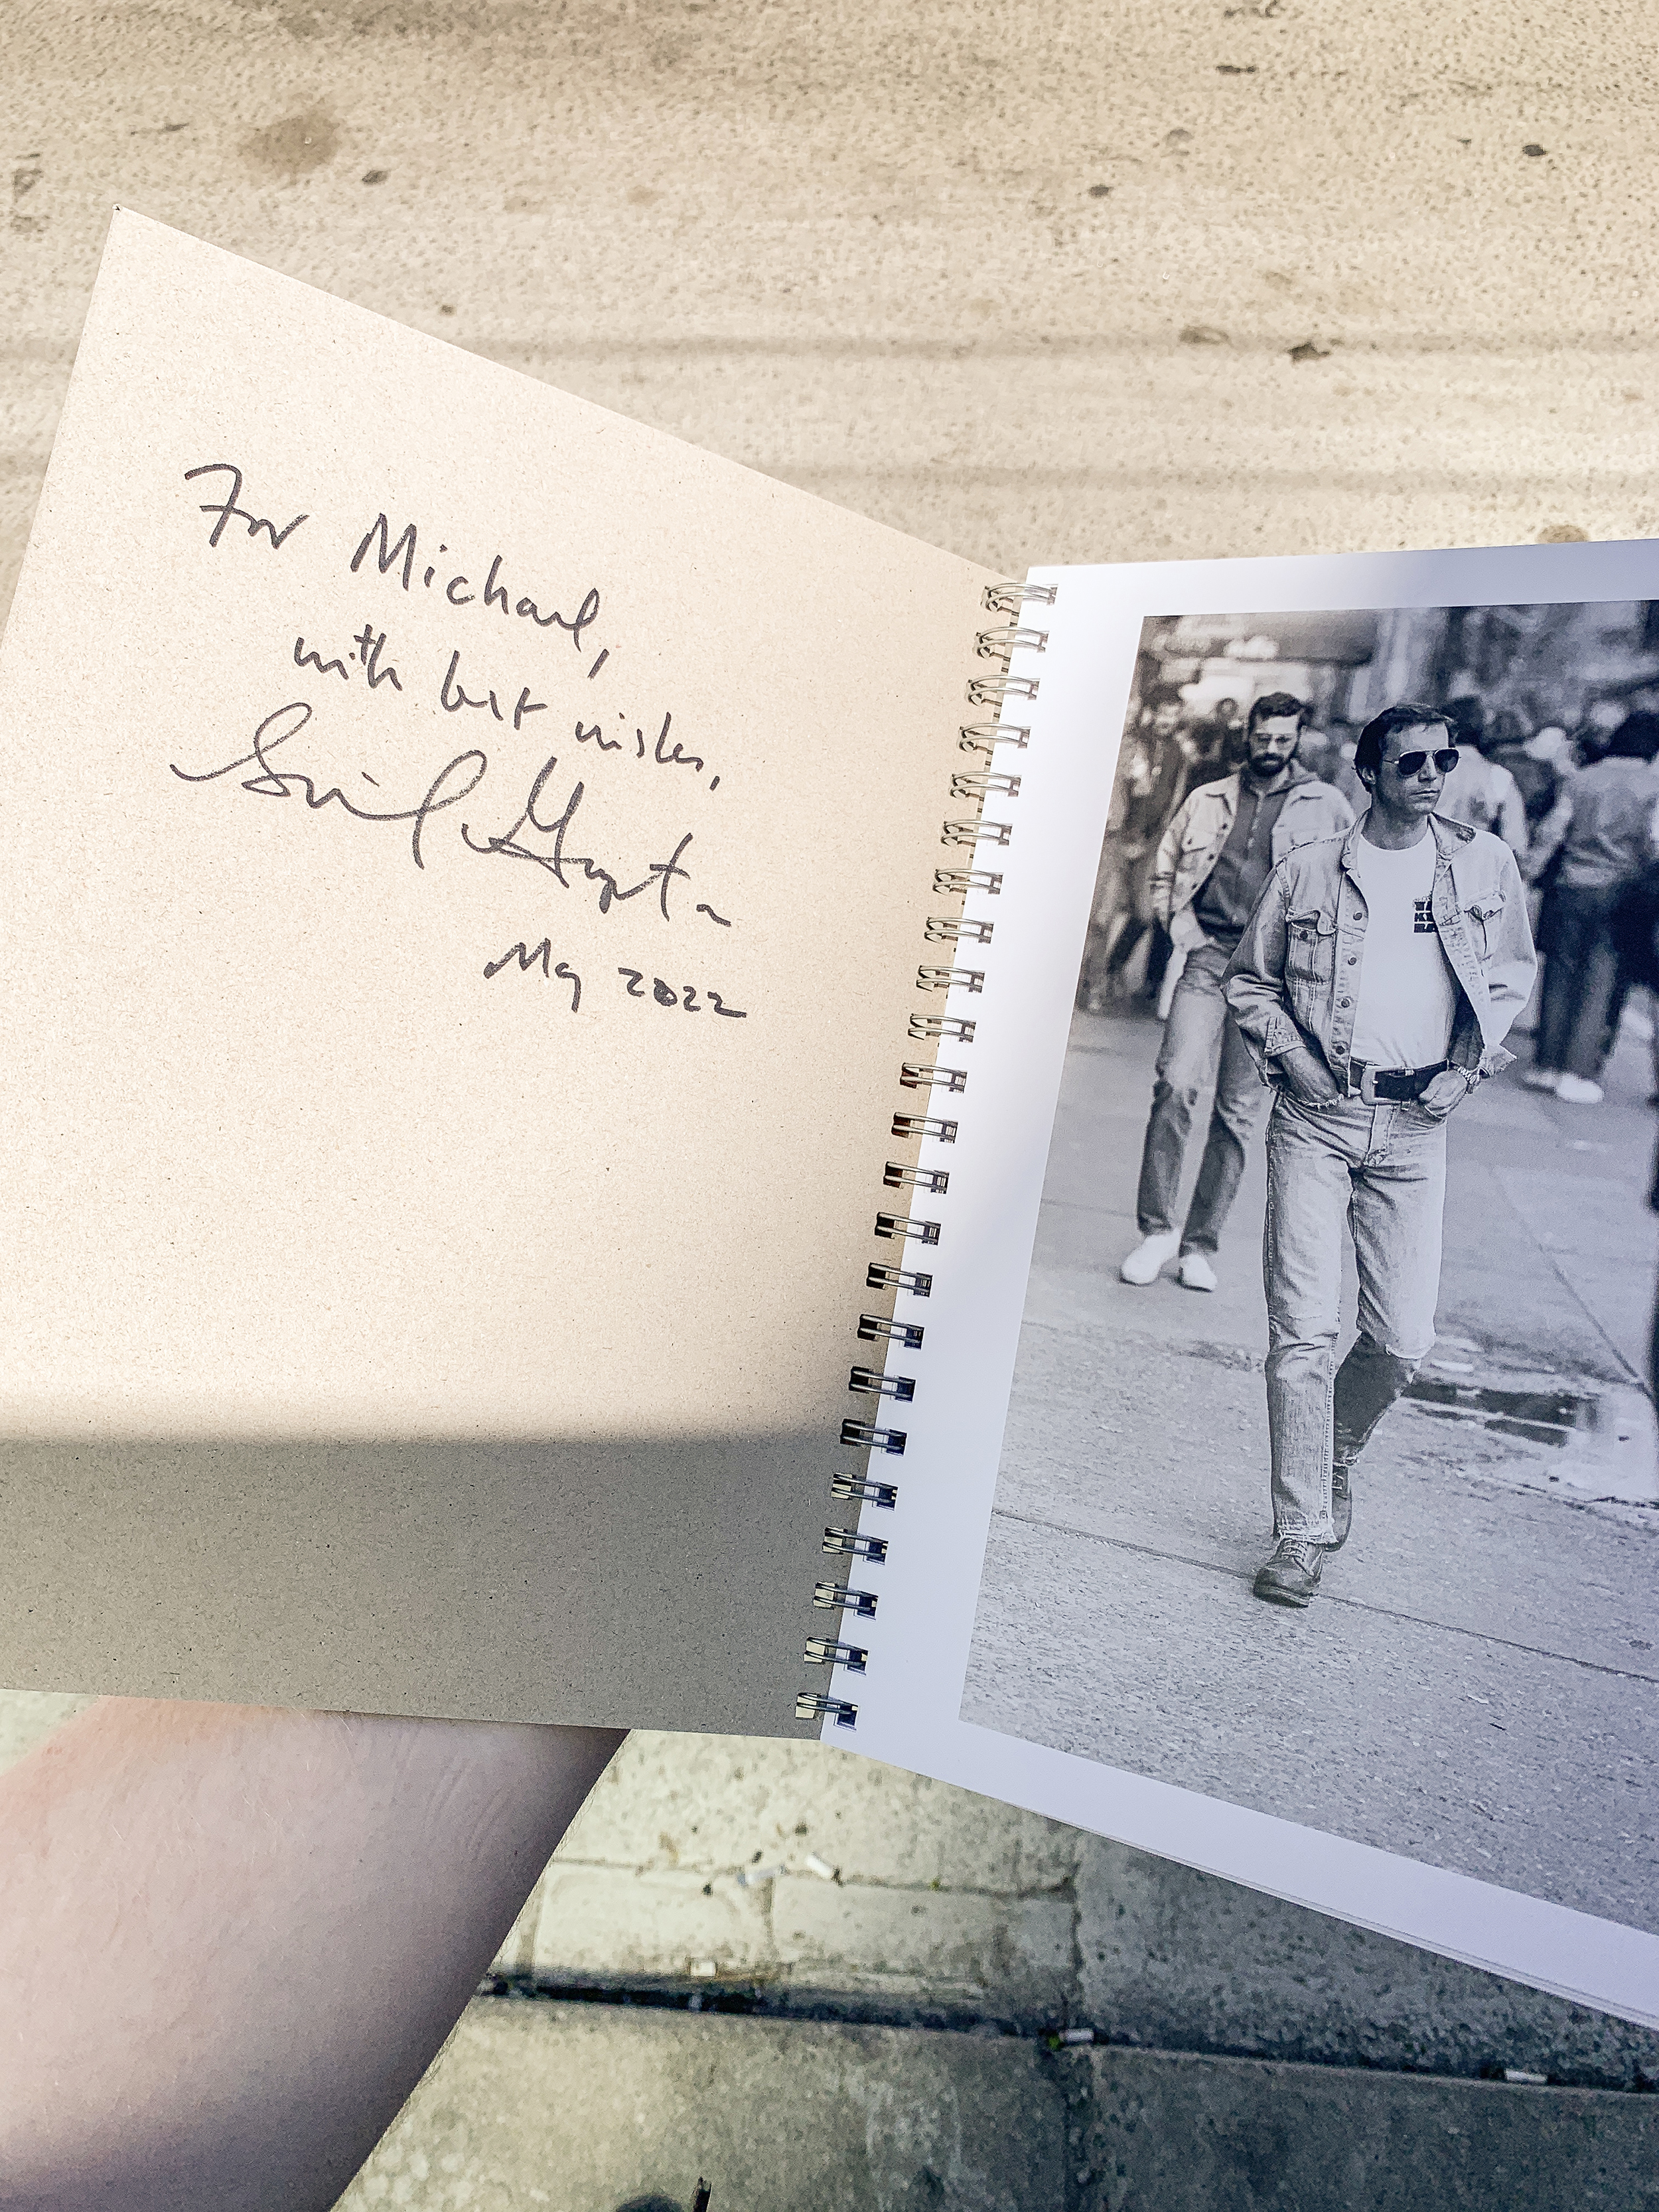 For Michael,
with best wishes,
Sunil Gupta
May 2022